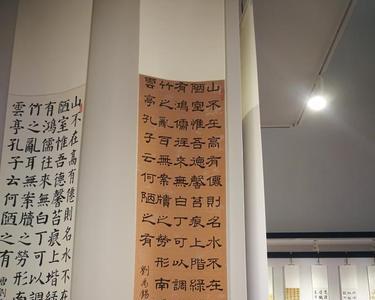 山不在高有僊則名水不在
陋室惟吾德馨苔痕上階綠
有鴻儒往來無白丁可以調
竹之亂耳無案牘之勞形南
雲亭孔子云何陋之有
劉禹錫
山不在高有僊則名水不在
陋室惟吾德馨苔痕上堦綠
有鴻儒往來無白丁可以調
竹之亂耳無案牘之勞形南
雲亭孔子云何陋之有